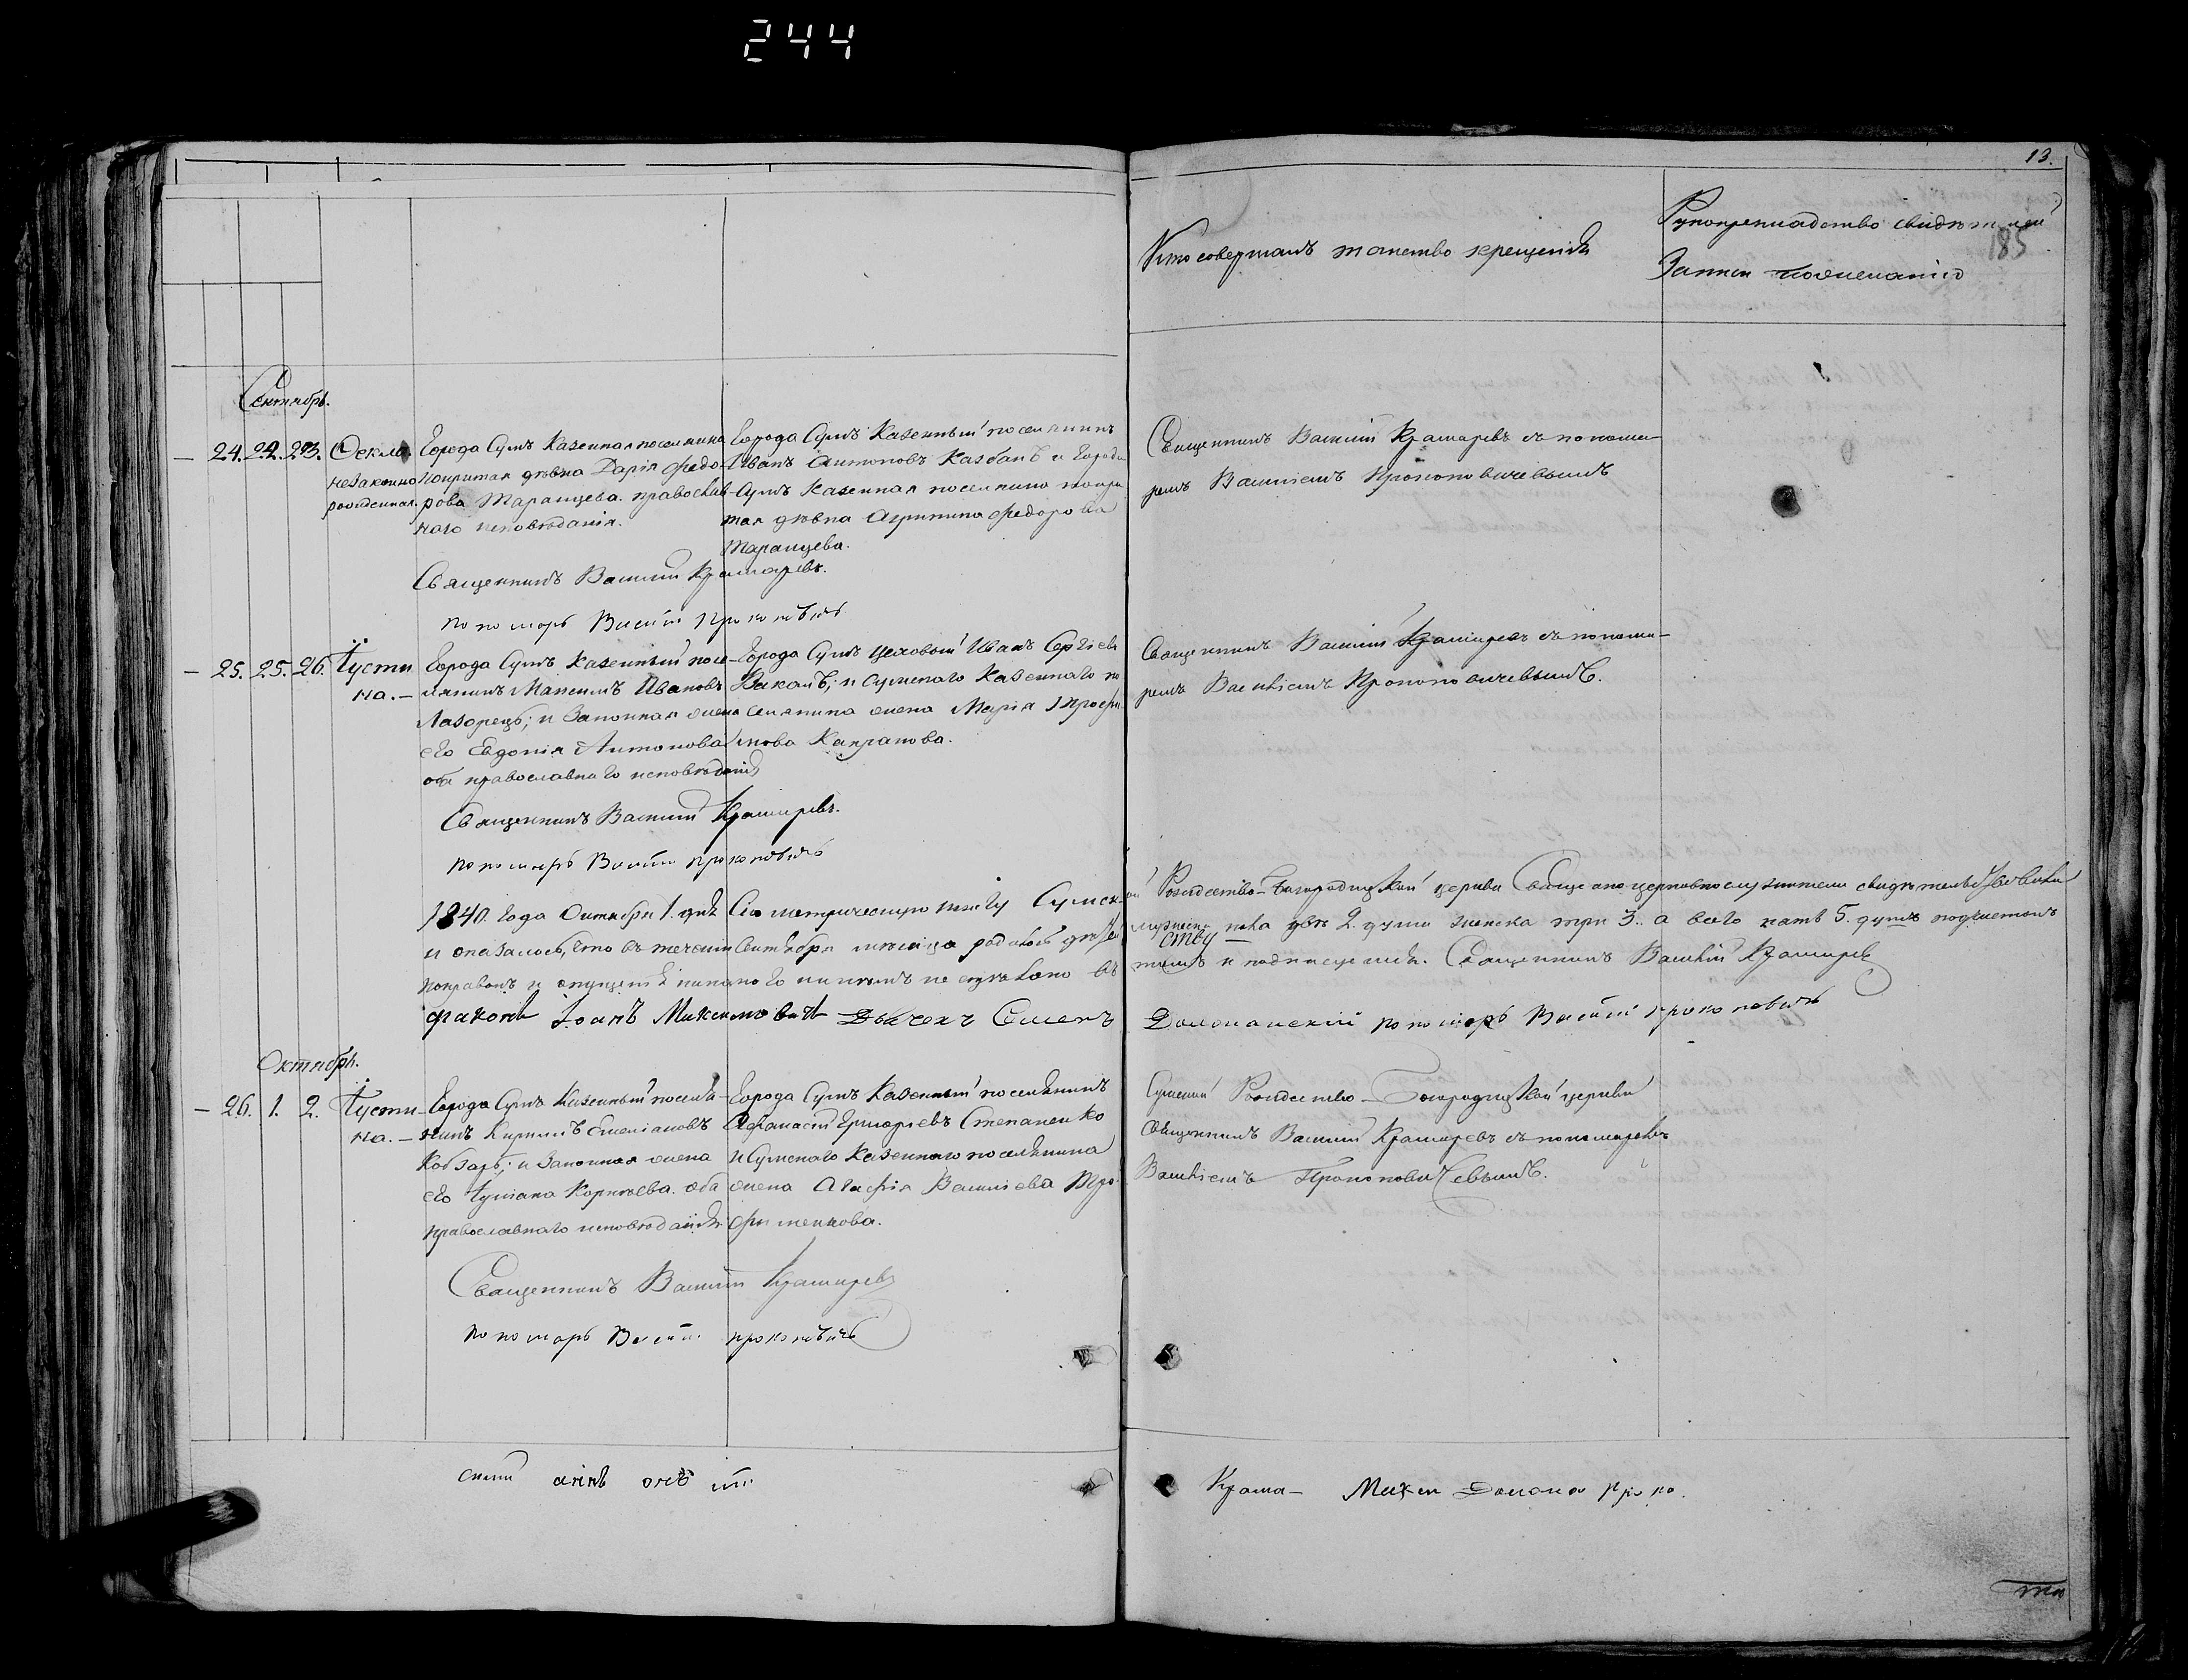 244
13.
Кто совершалъ таинство крещенія
Рукоприкладство свидѣтелей
записи по желанію
185
Сентябрь.
24. 22. 23. Фекла
незаконно
рожденная.
Города Сумъ Казенная поселянина
покритая дѣвка Дарія Федо-
рова Таранцева. православ-
наго исповѣданія.
Города Сумъ Казенный поселянинъ
Иванъ Антоновъ Казбанъ и Города
Сумъ Казенная поселянина покри
тая дѣвка Агрипина Федорова
Таранцева.
Священникъ Василій Крамаревъ съ понома-
ремъ Василіемъ Прокоповичевымъ
Священникъ Василій Крамаревъ.
пономарь Василій Прокоповичъ
25. 25. 26. Іусти
на.
Города Сумъ казенный посе-
лянинъ Максимъ Ивановъ
Лазорецъ; и Законная жена
его Евдокія Антонова
оба православнаго исповѣданія
Города Сумъ цеховый Иванъ Сергіевъ
Вакалъ; и Сумскаго Казеннаго по
селянина жена Марія Трофи
мова Капранова.
Священникъ Василій Крамаревъ съ понома-
ремъ Василіемъ Прокоповичевымъ.
Священникъ Василій Крамаревъ.
пономарь Василій прокоповичъ
1840. года Октября 1. дня Сію метрическую книгу Сумской Рождество-Богородицкой церкви Священноцерковнослужители свидѣтельствовали
и оказалось, что въ теченіи Сентября мѣсяца родилось мужеска пола двѣ 2. души женска три 3. а всего пять 5. душъ подчистокъ
ству
поправокъ и опущенія никакого ни кѣмъ не Священникъ Василій Крамаревъ
діаконъ Іоанъ Максимовичъ Дьячекъ Семенъ Доломанскій пономарь Василій прокоповичъ
Октябрь.
26. 1. 2. Іусти
на.
Города Сумъ Казенный поселя-
нинъ Кирилъ Емеліановъ
Кобзарь; и Законная жена
его Іуліана Корнѣева. оба
православнаго исповѣданія
Города Сумъ Казенный поселянинъ
Афанасій Григоріевъ Степаненко
и Сумскаго Казеннаго поселянина
жена Агафія Василіева Тро
фименкова.
Сумской Рождество-Богородицкой церкви
Священникъ Василій Крамаревъ съ пономаремъ
Василіемъ Прокоповичевымъ.
Священникъ Василій Крамаревъ
пономарь Василій прокоповичъ
Крама- Макси Долома проко.